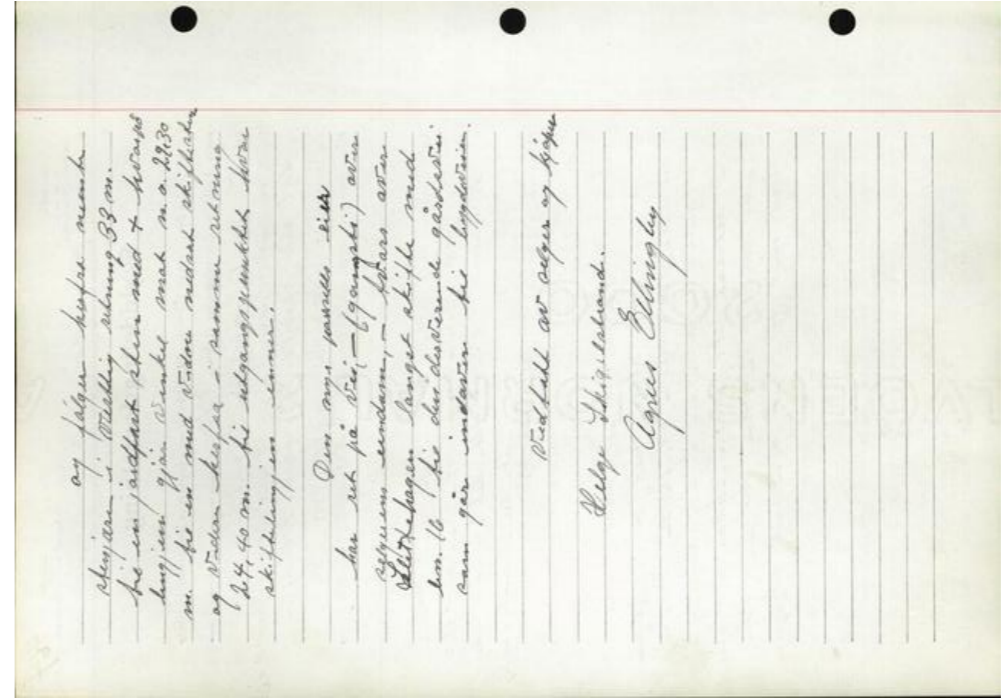 og følger herfra nevnte
steingjære i vestlig retning 33 m.
til en jordfast stein med + hvorpå
lingjen gjør vinkel mot n.o. 29,30
m. til en med vidne nedsat skiftestein
og videre herfra i samme retning
24,40 m. til utgangspunktet hvor
skiftelingjen enner.
Den nye parsells eier
har ret på vei, – (gangsti) over
selgerens eiendom, – tvers over
Slettehagen langst skifte med
bn. 16 til den derværende gårdsvei
som går indover til bygdeveien.
Vedtatt av selger og kjøper
Helge Skigelstrand.
Agnes Ellingby